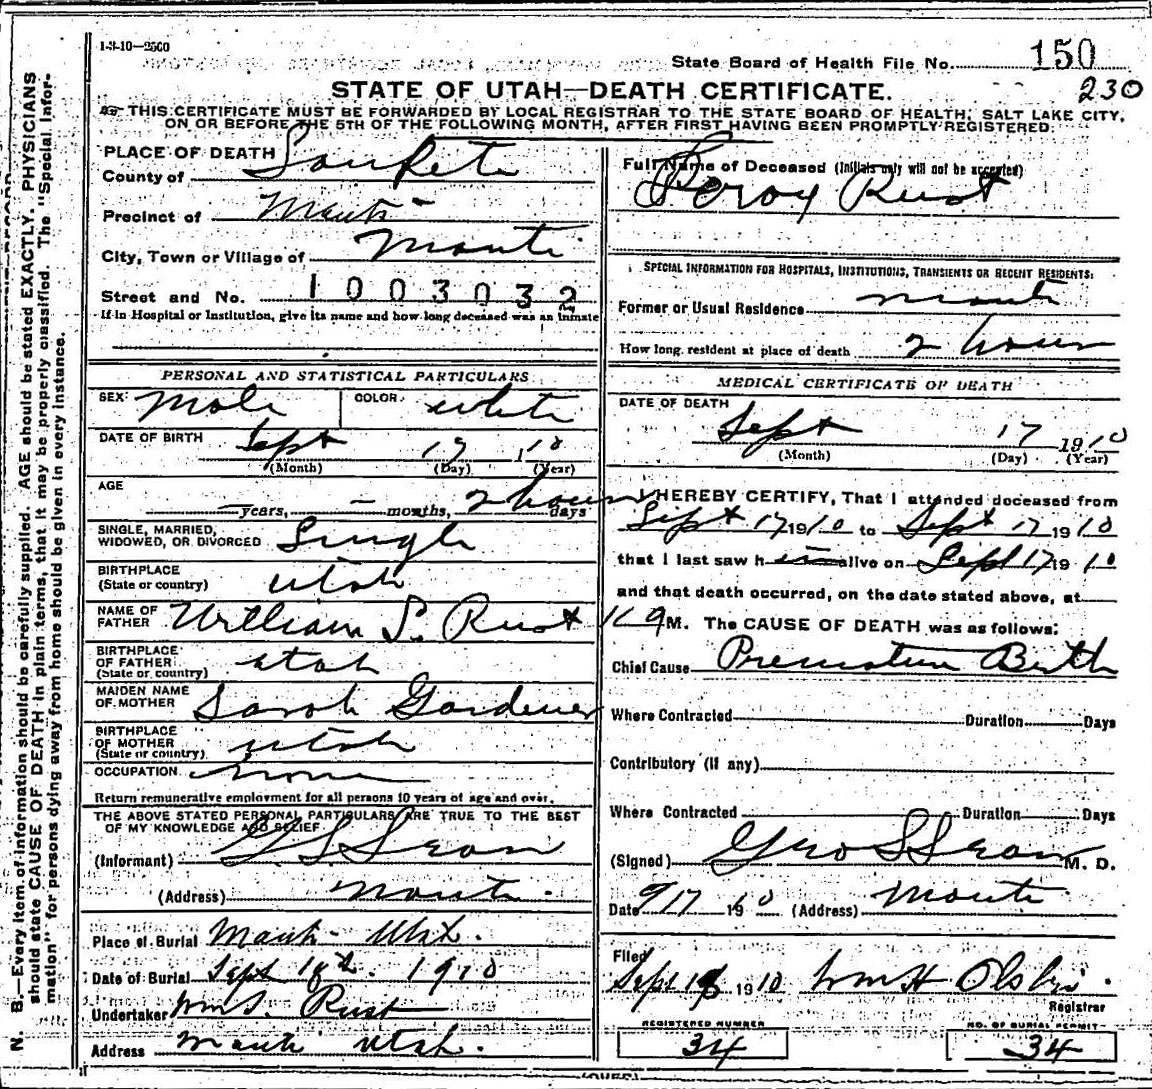 1-3-10-2500
State Board of Health File No. 150
230
STATE OF UTAH—DEATH CERTIFICATE.
THIS CERTIFICATE MUST BE FORWARDED BY LOCAL REGISTRAR TO THE STATE BOARD OF HEALTH, SALT LAKE CITY,
ON OR BEFORE THE 5TH OF THE FOLLOWING MONTH, AFTER FIRST HAVING BEEN PROMPTLY REGISTERED.
N. B.—Every item of information should be carefully supplied. AGE should be stated EXACTLY. PHYSICIANS
should state CAUSE OF DEATH in plain terms, that it may be properly classified. The "Special Infor-
mation" for persons dying away from home should be given in every instance.
PLACE OF DEATH
County of Sanpete
Precinct of Manti
City, Town or Village of Manti
Street and No. 1003032
If in Hospital or Institution, give its name and how long deceased was an inmate
PERSONAL AND STATISTICAL PARTICULARS
SEX Male COLOR White
DATE OF BIRTH Sept 17 1910
(Month) (Day) (Year)
AGE
— years, — months, 2 hours days
SINGLE, MARRIED,
WIDOWED, OR DIVORCED Single
BIRTHPLACE
(State or country) Utah
NAME OF
FATHER William S. Rust
BIRTHPLACE
OF FATHER
(State or country) Utah
MAIDEN NAME
OF MOTHER Sarah Gardener
BIRTHPLACE
OF MOTHER
(State or country) Utah
OCCUPATION None
Return remunerative employment for all persons 10 years of age and over.
THE ABOVE STATED PERSONAL PARTICULARS ARE TRUE TO THE BEST
OF MY KNOWLEDGE AND BELIEF
(Informant) G. L. Sears
(Address) Manti
Place of Burial Manti Utah.
Date of Burial Sept 18th. 1910
Undertaker Wm S. Rust
Address Manti Utah.
Full Name of Deceased (Initials only will not be accepted)
Leroy Rust
SPECIAL INFORMATION FOR HOSPITALS, INSTITUTIONS, TRANSIENTS OR RECENT RESIDENTS:
Former or Usual Residence Manti
How long resident at place of death 2 hours
MEDICAL CERTIFICATE OF DEATH
DATE OF DEATH
Sept 17 1910
(Month) (Day) (Year)
I HEREBY CERTIFY, That I attended deceased from
Sept 17 1910 to Sept 17 1910
that I last saw h im alive on Sept 17 1910
and that death occurred, on the date stated above, at
M. The CAUSE OF DEATH was as follows:
Chief Cause Premature Birth
Where Contracted Duration Days
Contributory (if any)
Where Contracted Duration Days
(Signed) Geo L Sears M. D.
Date 9/17 1910 (Address) Manti
Filed
Sept 18 1910 Wm H Olsen
Registrar
REGISTERED NUMBER
34
NO. OF BURIAL PERMIT
34
(OVER)